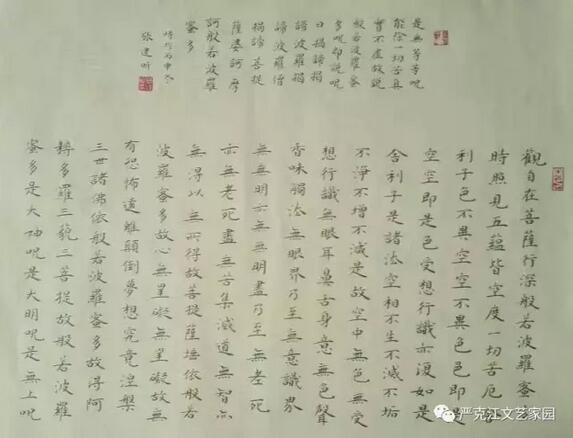 觀自在菩薩行深般若波羅蜜多
時照見五蘊皆空度一切苦厄舍
利子色不異空空不異色色即是
空空即是色受想行識亦復如是
舍利子是諸法空相不生不滅不垢
不淨不增不減是故空中無色無受
想行識無眼耳鼻舌身意無色聲
香味觸法無眼界乃至無意識界
無無明亦無無明盡乃至無老死
亦無老死盡無苦集滅道無智亦
無得以無所得故菩提薩埵依般若
波羅蜜多故心無罣礙無罣礙故無
有恐怖遠離顛倒夢想究竟涅槃
三世諸佛依般若波羅蜜多故得阿
耨多羅三藐三菩提故般若波羅
蜜多是大神呪是大明呪是無上呪
是無等等呪
能除一切苦真
實不虛故說
般若波羅蜜
多呪即說呪
曰揭諦揭
諦波羅揭
諦波羅僧
揭諦菩提
薩婆訶摩
訶般若波羅
蜜多
丙申
張建
严克江文艺家园